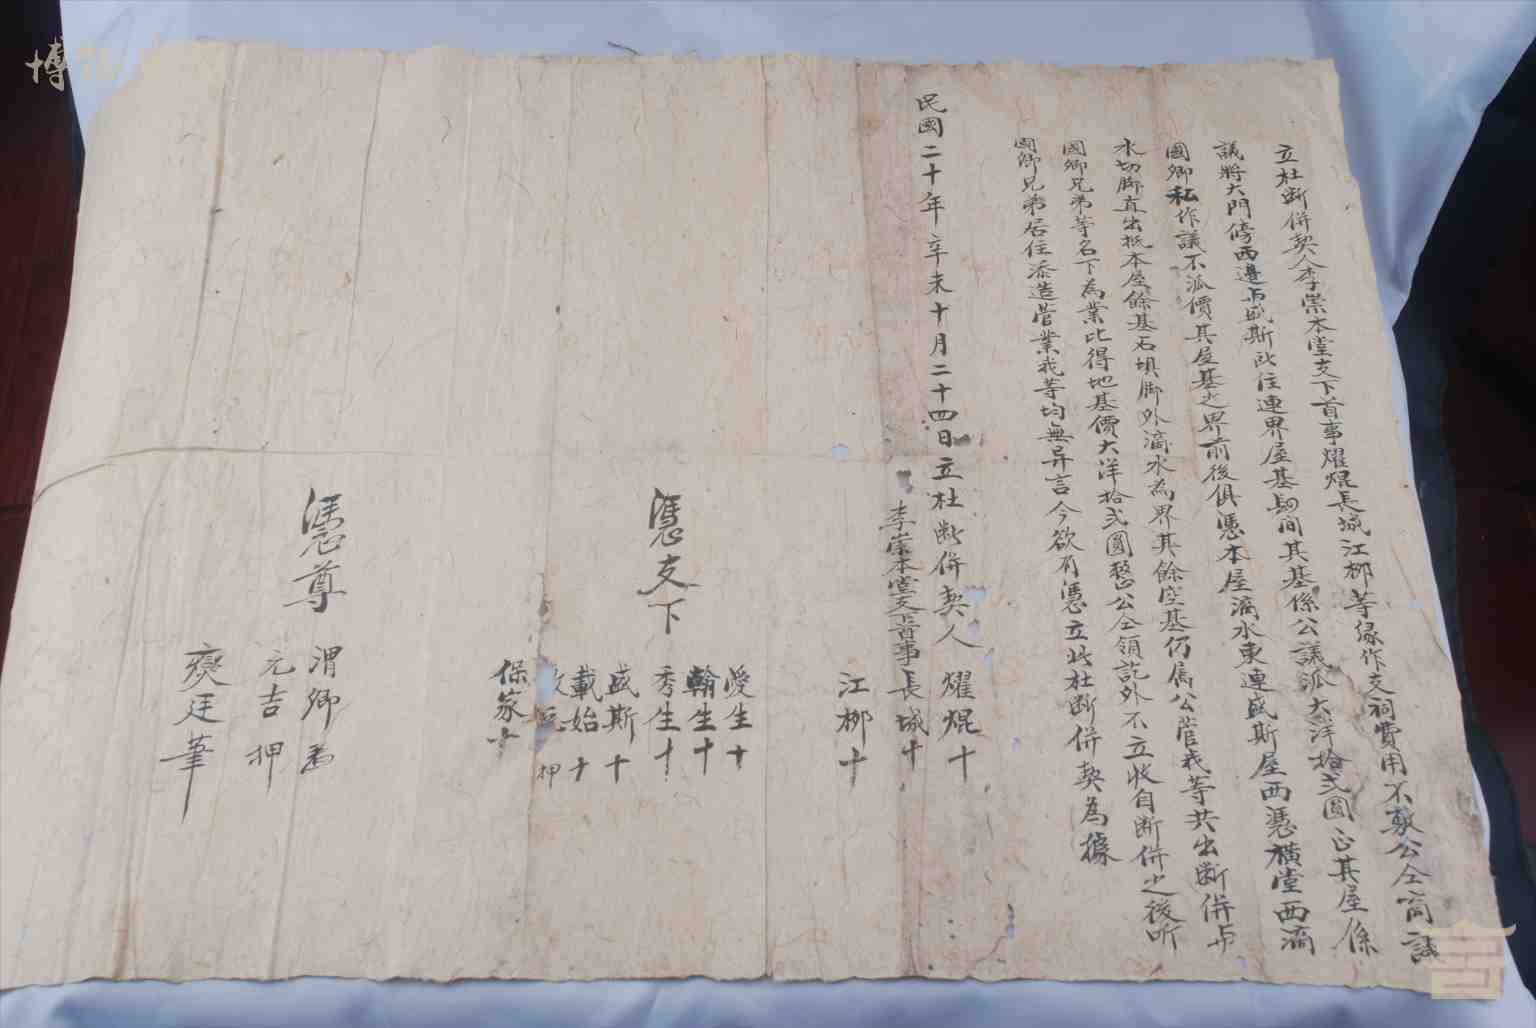 立杜斷併契人李崇本堂支下首事耀焜長城江柳等緣作支祠費用不敷公仝商議
議將大門傍西邊与盛斯毗住連界屋基 間其基係公議派大洋拾弍圓正其屋係
國卿私作議不派價其屋基之界前後俱憑本屋滴水東連盛斯屋西憑橫堂西滴
水切脚直出抵本屋餘基石埧脚外滴水為界其餘空基仍属公管我等共出斷併与
國卿兄弟等名下為業比得地基價大洋拾弍圓整公仝領訖外不立收自斷併之後听
國卿兄弟居住添造管業我等均無异言今欲有憑立此杜斷併契為據
民國二十年辛未十月二十四日立杜斷併契人 耀焜十
李崇本堂支下首事長城十
江柳十
憑支下
愛生十
翰生十
秀生十
盛斯十
載始十
押
保家十
憑尊
渭卿
元吉押
廷筆